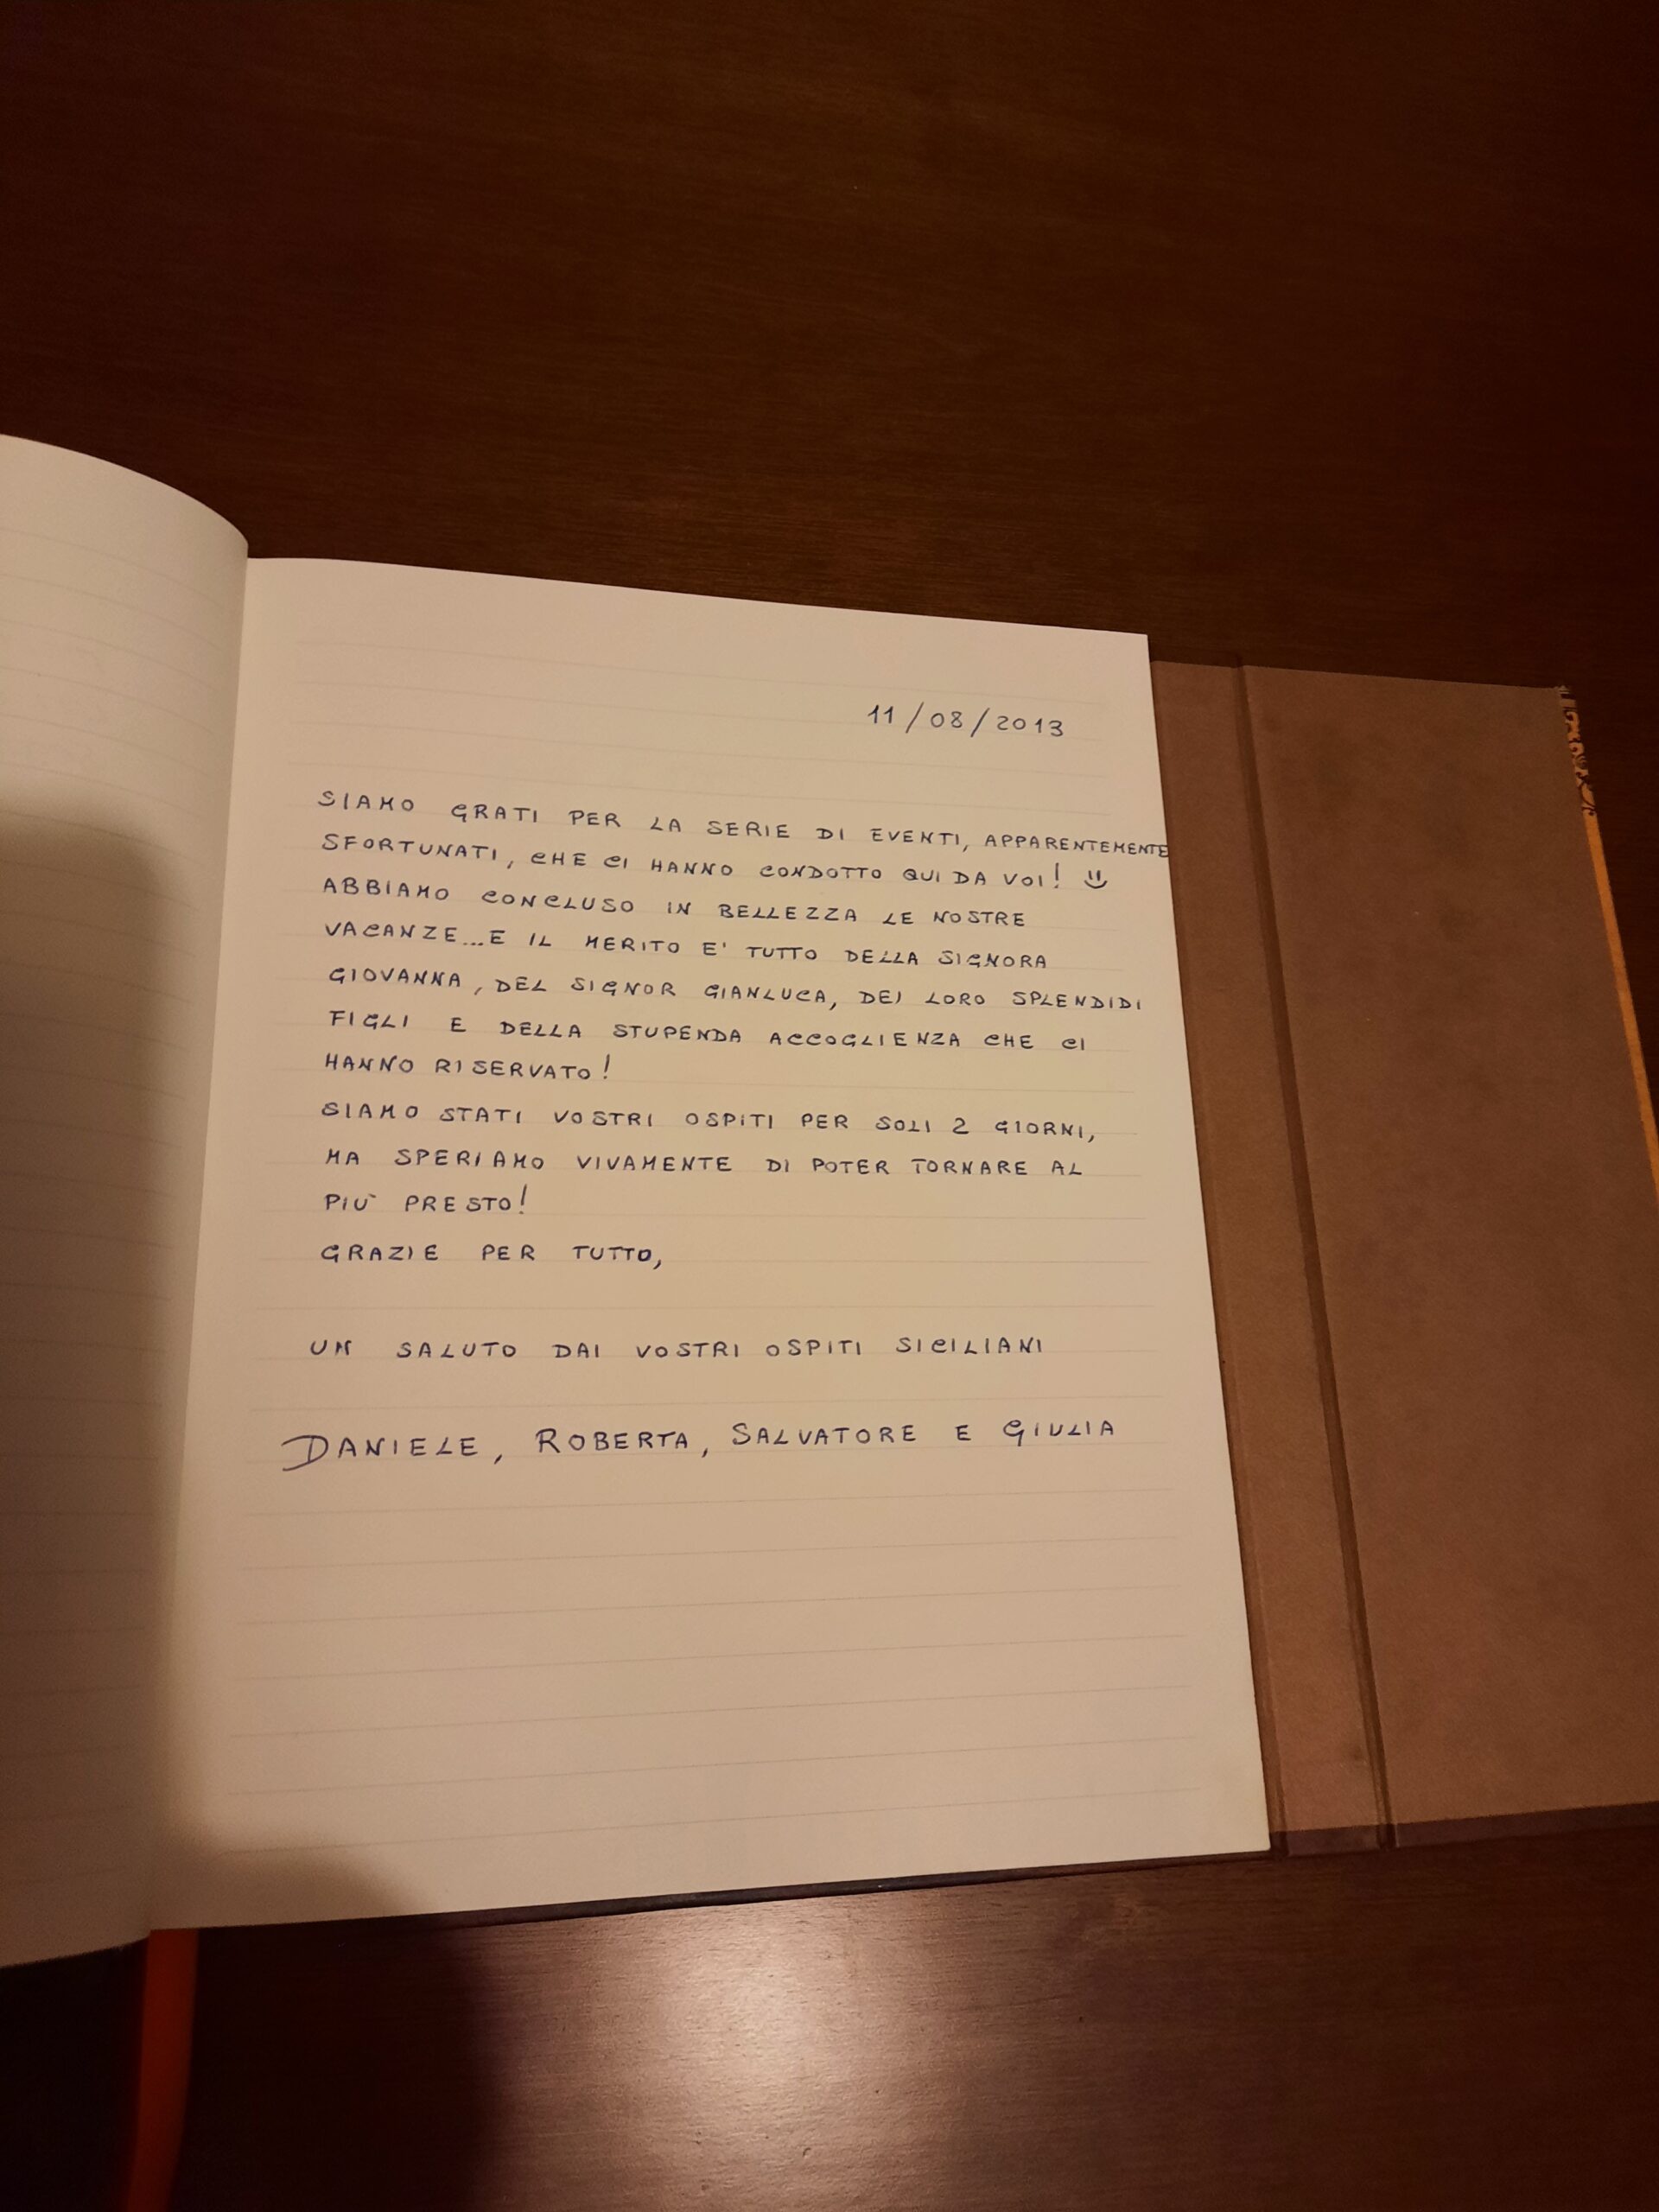 11/08/2013
SIAMO GRATI PER LA SERIE DI EVENTI, APPARENTEMENTE
SFORTUNATI, CHE CI HANNO CONDOTTO QUI DA VOI!
ABBIAMO CONCLUSO IN BELLEZZA LE NOSTRE
VACANZE...E IL MERITO E' TUTTO DELLA SIGNORA
GIOVANNA, DEL SIGNOR GIANLUCA, DEI LORO SPLENDIDI
FIGLI E DELLA STUPENDA ACCOGLIENZA CHE CI
HANNO RISERVATO!
SIAMO STATI VOSTRI OSPITI PER SOLI 2 GIORNI,
MA SPERIAMO VIVAMENTE DI POTER TORNARE AL
PIÙ PRESTO!
GRAZIE PER TUTTO,
UN SALUTO DAI VOSTRI OSPITI SICILIANI
DANIELE, ROBERTA, SALVATORE E GIULIA